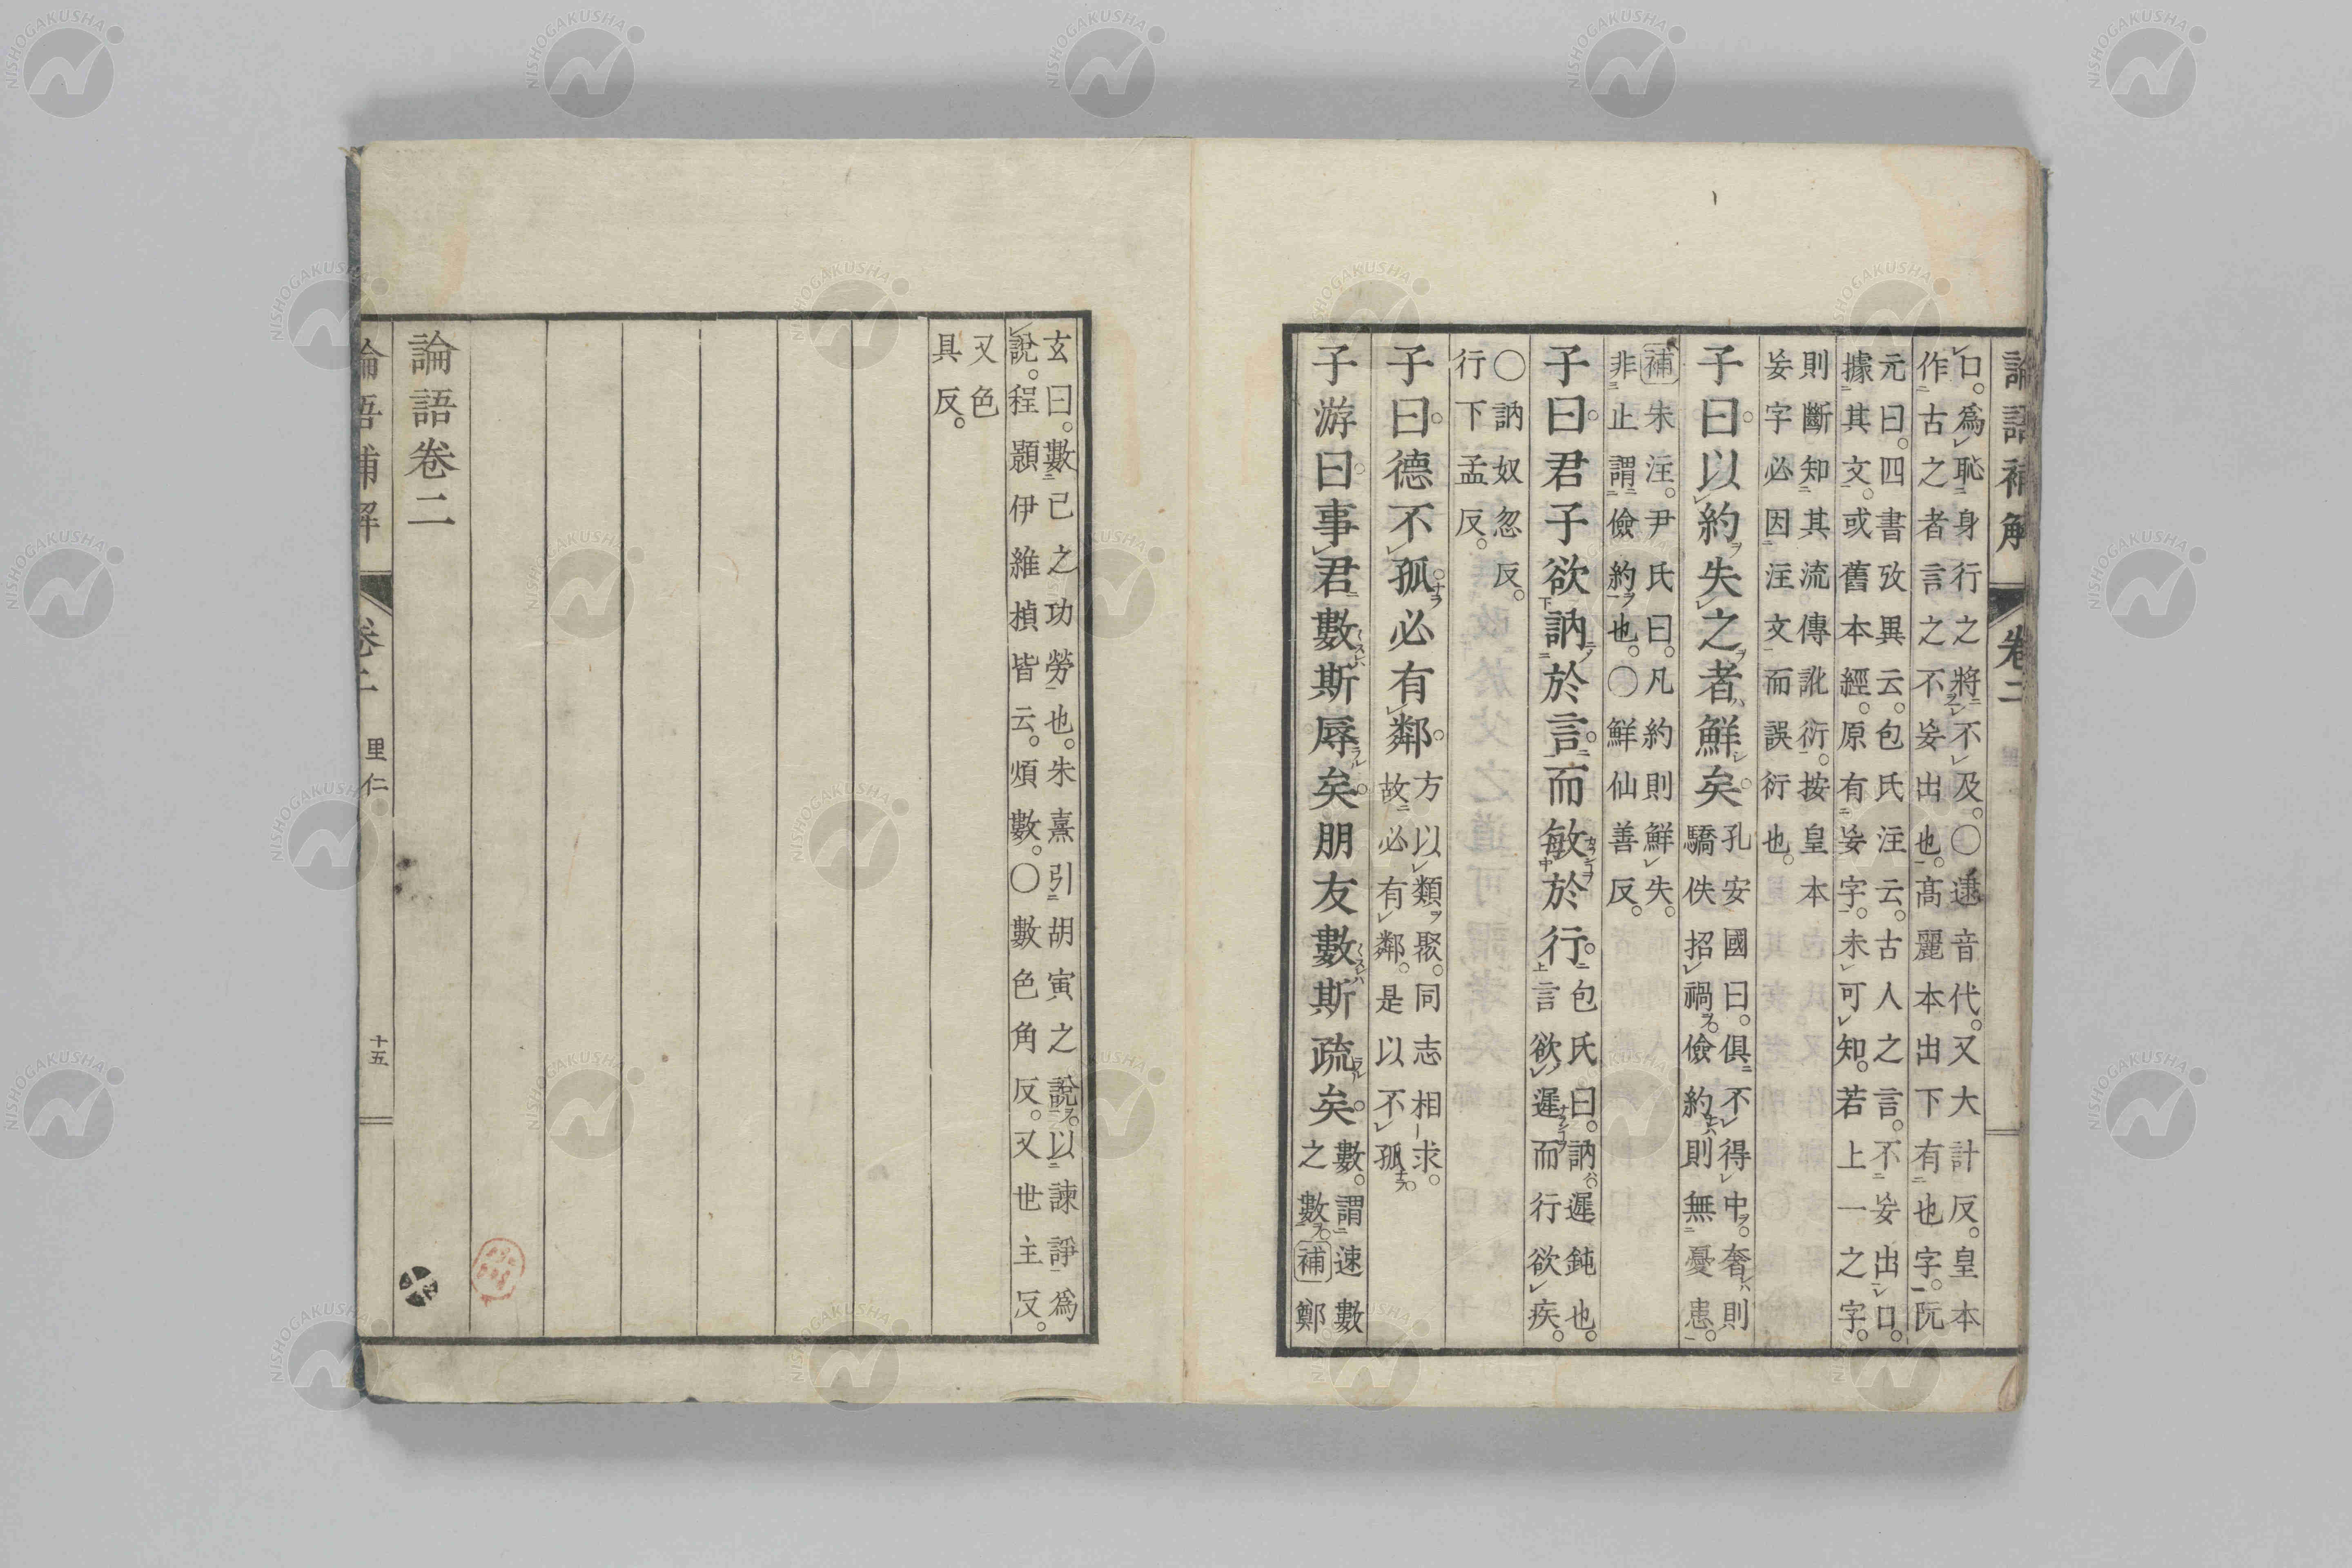 論語補解 卷二
口。爲恥身行之將不及。〇逮音代。又大計反。皇本
作古之者言之不妄出也。髙麗本出下有也字。阮
元曰。四書攷異云。包氏注云。古人之言。不妄出口。
據其文。或舊本經。原有妄字。未可知。若上一之字。
則斷知其流傳訛衍。按皇本
妄字必因注文而誤衍也。
子曰。以約失之者鮮矣。
孔安國曰。俱不得中。奢則
驕佚招禍。儉約則無憂患。
補朱注。尹氏曰。凡約則鮮失。
非止謂儉約也。〇鮮仙善反。
子曰。君子欲訥於言。而敏於行。
包氏曰。訥遲鈍也。
言欲遲而行欲疾。
〇訥奴忽反。
行下孟反。
子曰。德不孤。必有鄰。
方以類聚。同志相求。
故必有鄰。是以不孤。
子游曰。事君數斯辱矣。朋友數斯疏矣。
數。謂速數
之數。補鄭
玄曰。數已之功勞也。朱熹引胡寅之說。以諫諍爲
說。程顥伊維楨皆云。煩數。〇數色角反。又世主反。
又色
具反。
論語卷二
論語補解 卷二 里仁 十五
NISHOGAKUSHA